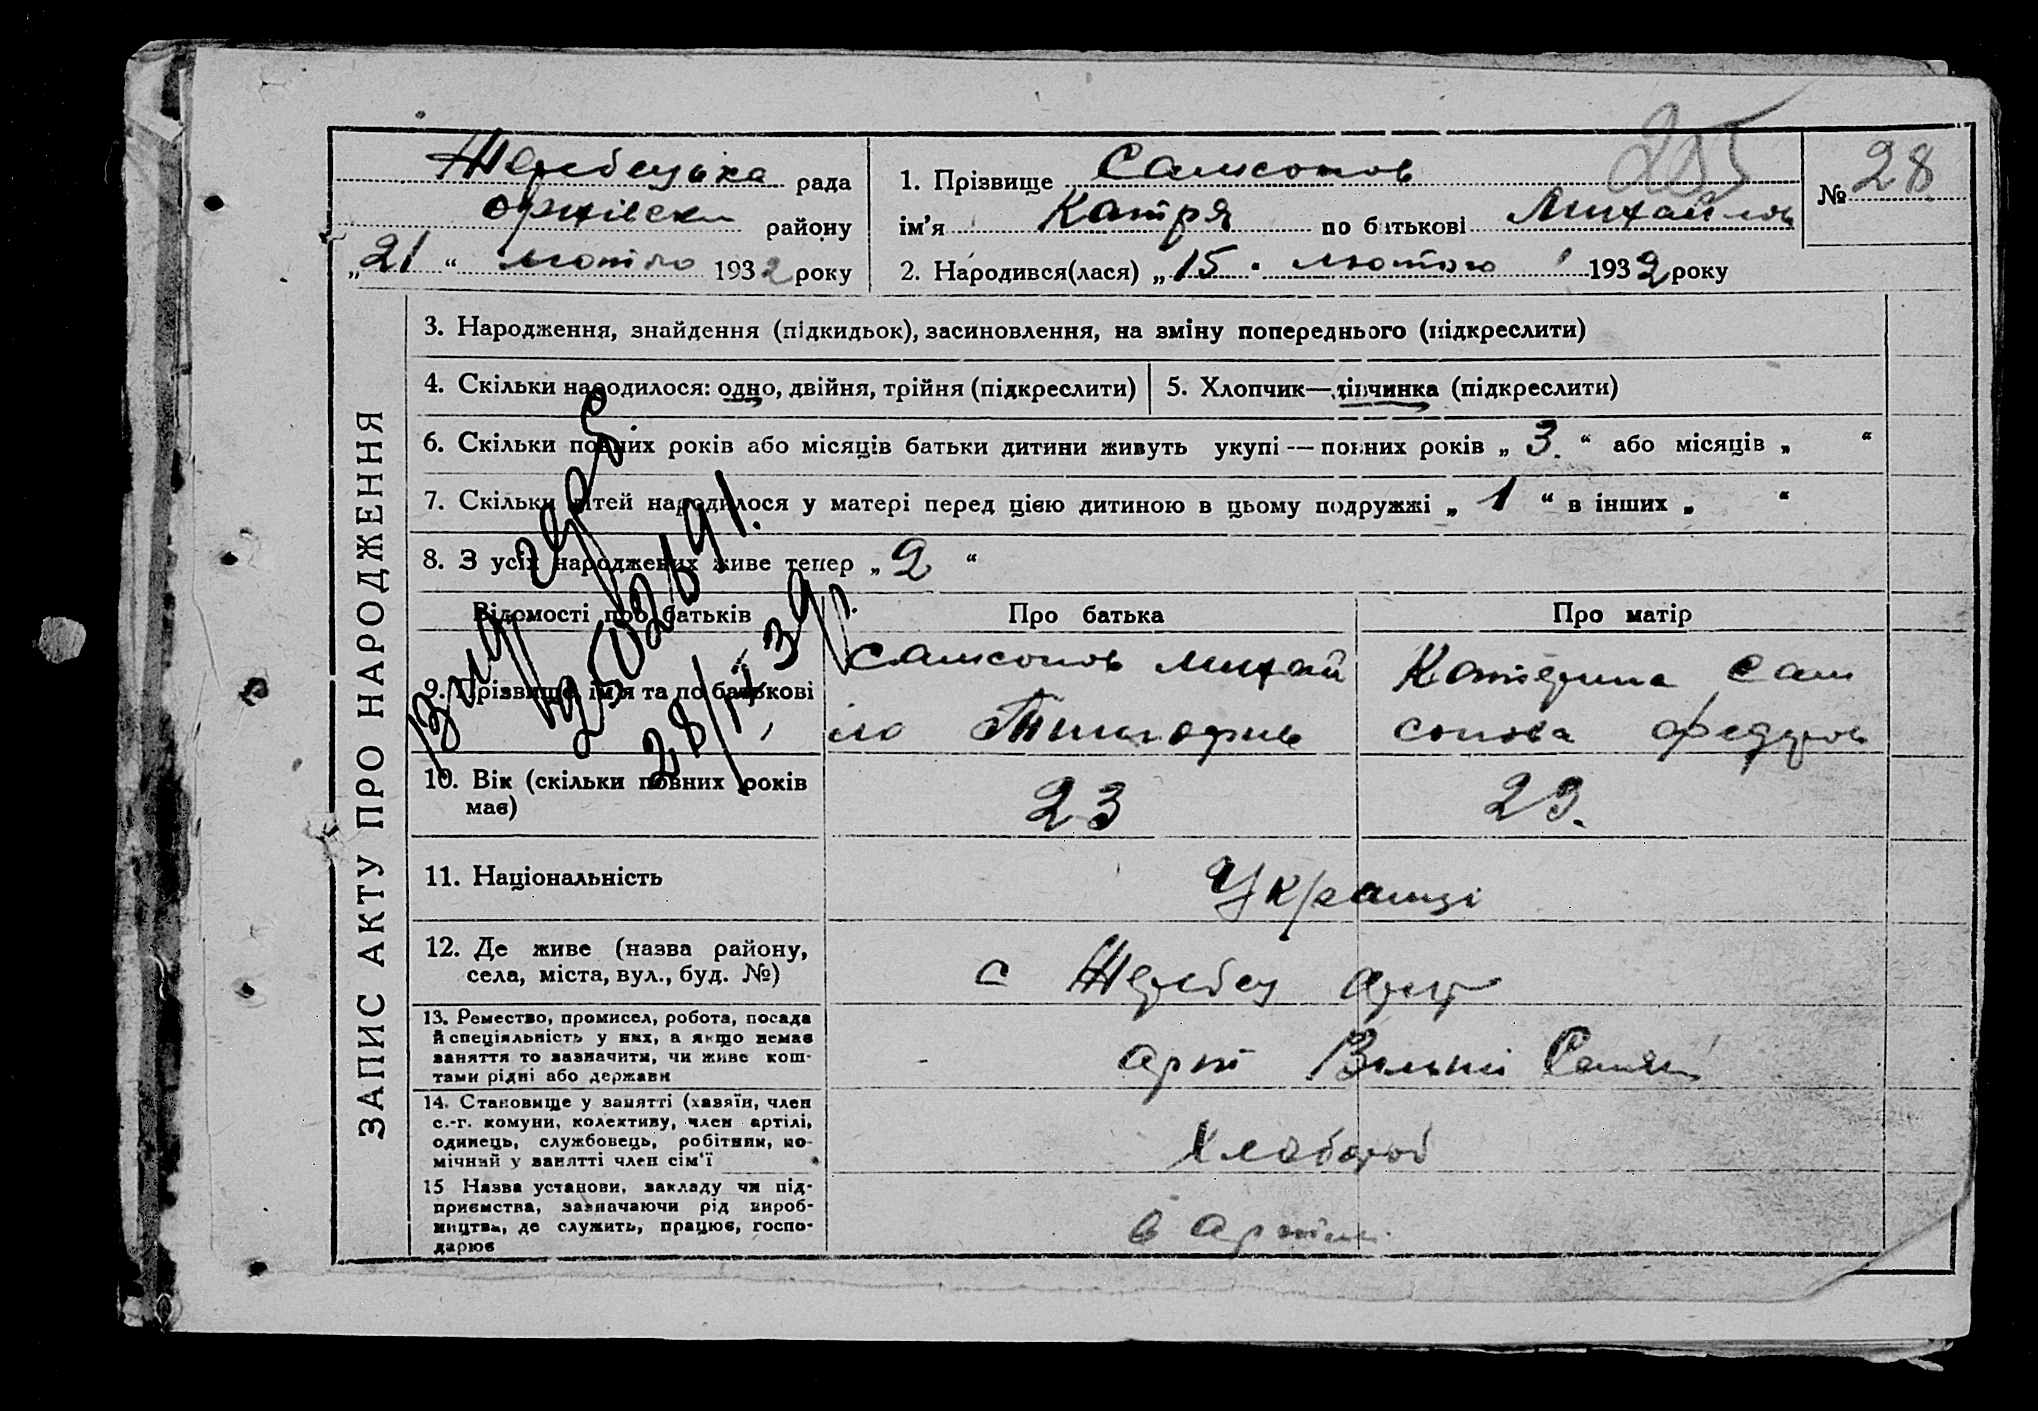 205
Жеребецька рада
Оржівськ району
„21“ лютого 1932 року
1. Прізвище Самсонов
ім'я Катря по батькові Михайлов
2. Народився(лася) „15“ лютого 1932 року
№ 28
ЗАПИС АКТУ ПРО НАРОДЖЕННЯ
3. Народження, знайдення (підкидьок), засиновлення, на зміну попереднього (підкреслити)
4. Скільки народилося: одно, двійня, трійня (підкреслити)
5. Хлопчик—дівчинка (підкреслити)
6. Скільки повних років або місяців батьки дитини живуть укупі — повних років „3.“ або місяців „ “
7. Скільки дітей народилося у матері перед цією дитиною в цьому подружжі „1“ в інших „ “
8. З усіх народжених живе тепер „2“
Відомості про батьків
Про батька
Про матір
9. Прізвище, ім'я та по батькові
Самсонов Михай
ло
Катерина Сам
сонова Федоров
10. Вік (скільки повних років
має)
23
23.
11. Національність
Українці
12. Де живе (назва району,
села, міста, вул., буд. №)
с Жеребец
13. Ремество, промисел, робота, посада
й спеціяльність у них, а якщо немає
заняття то зазначити, чи живе кош-
тами рідні або держави
арт
14. Становище у занятті (хазяїн, член
с.-г. комуни, колективу, член артілі,
одинець, службовець, робітник, по-
мічний у занятті член сім'ї
Хлібороб
15 Назва установи, закладу чи під-
приємства, зазначаючи рід вироб-
ництва, де служить, працює, госпо-
дарює
в артіли